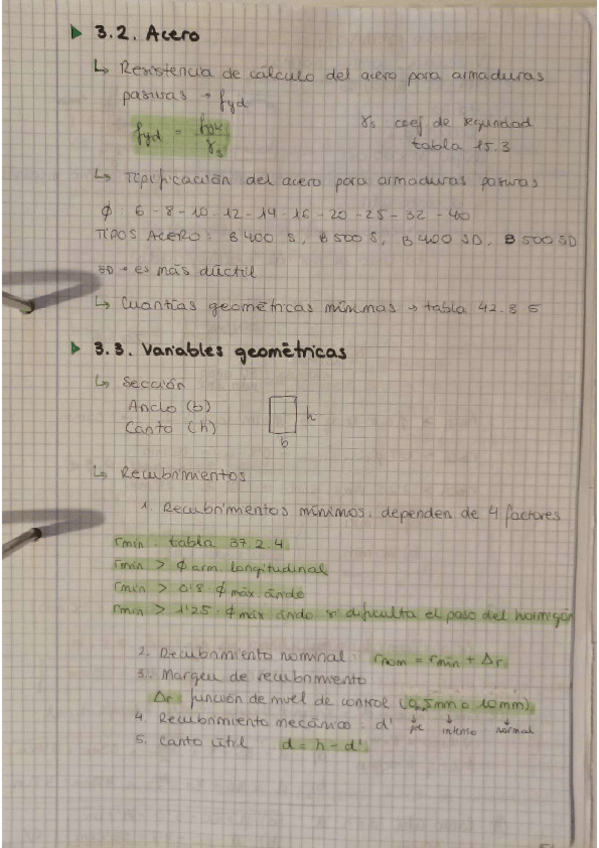 ▶ 3.2. Acero
↳ Resistencia de cálculo del acero para armaduras
pasivas → fyd
fyd = fyk / γs
γs coef de seguridad
tabla 15.3
↳ Tipificación del acero para armaduras pasivas
ϕ : 6 - 8 - 10 - 12 - 14 - 16 - 20 - 25 - 32 - 40
TIPOS ACERO: B 400 S, B 500 S, B 400 SD, B 500 SD
SD → es más dúctil
↳ Cuantías geométricas mínimas → tabla 42.3.5
▶ 3.3. Variables geométricas
↳ Sección
Ancho (b)
Canto (h)
h
b
↳ Recubrimientos
1. Recubrimientos mínimos: dependen de 4 factores
rmin : tabla 37.2.4
rmin > ϕ arm. longitudinal
rmin > 0'8 · ϕ máx árido
rmin > 1'25 · ϕ máx árido si dificulta el paso del hormigón
2. Recubrimiento nominal: rnom = rmin + Δr
3. Margen de recubrimiento
Δr : función de nivel de control (0,5mm o 10mm)
4. Recubrimiento mecánico: d'
intenso normal
5. Canto útil d = h - d'